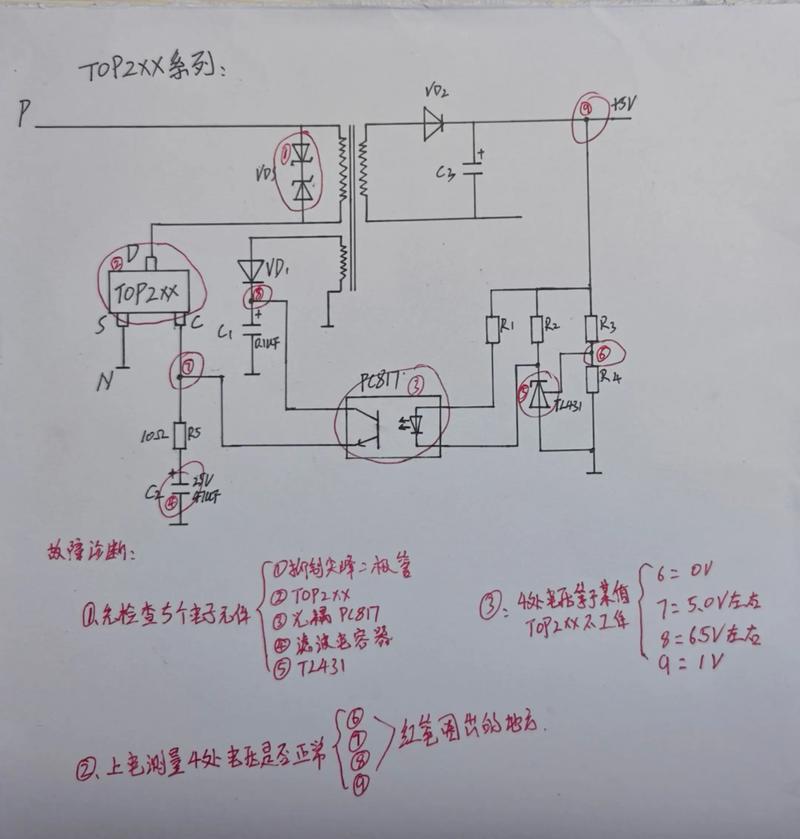 TOP2XX系列:
P
VD2
⑨
+5V
①
VD3
C3
+
②
D
TOP2XX
S
C
VD1
⑧
+
C1
0.1uF
N
⑦
PC817
③
R1
R2
R3
⑥
R4
⑤
TL431
10Ω
R5
+
C2
25V
47uF
④
故障诊断:
①.先检查5个电子元件
①抑制尖峰二极管
②TOP2XX
③光耦PC817
④滤波电容器
⑤TL431
③: 4处电压等于某值
TOP2XX不工作
6=0V
7=5.0V左右
8=6.5V左右
9=1V
②、上电测量4处电压是否正常
⑥
⑦
⑧
⑨
红笔圈出的地方.